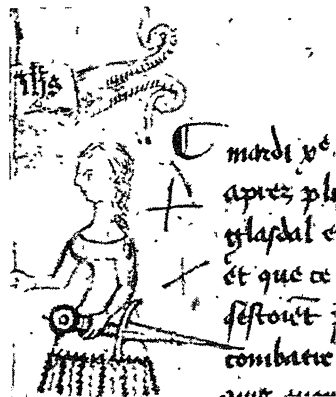 ihs
mardi xe
aprez pl
glasdal e
et que ce
sestoiēt
combatre